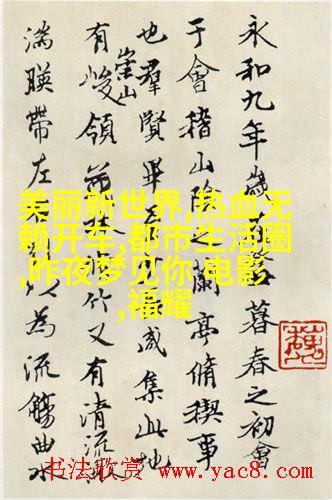 永和九年歲在癸丑暮春之初會
于會稽山陰之蘭亭脩禊事
也羣賢畢至咸集此地
有崇山峻領茂林脩竹又有清流激
湍暎帶左右引以為流觴曲水
美丽新世界,热血无
赖开车,都市生活圈
,昨夜梦见你,电影
,福耀
书法欣赏 www.yac8.com